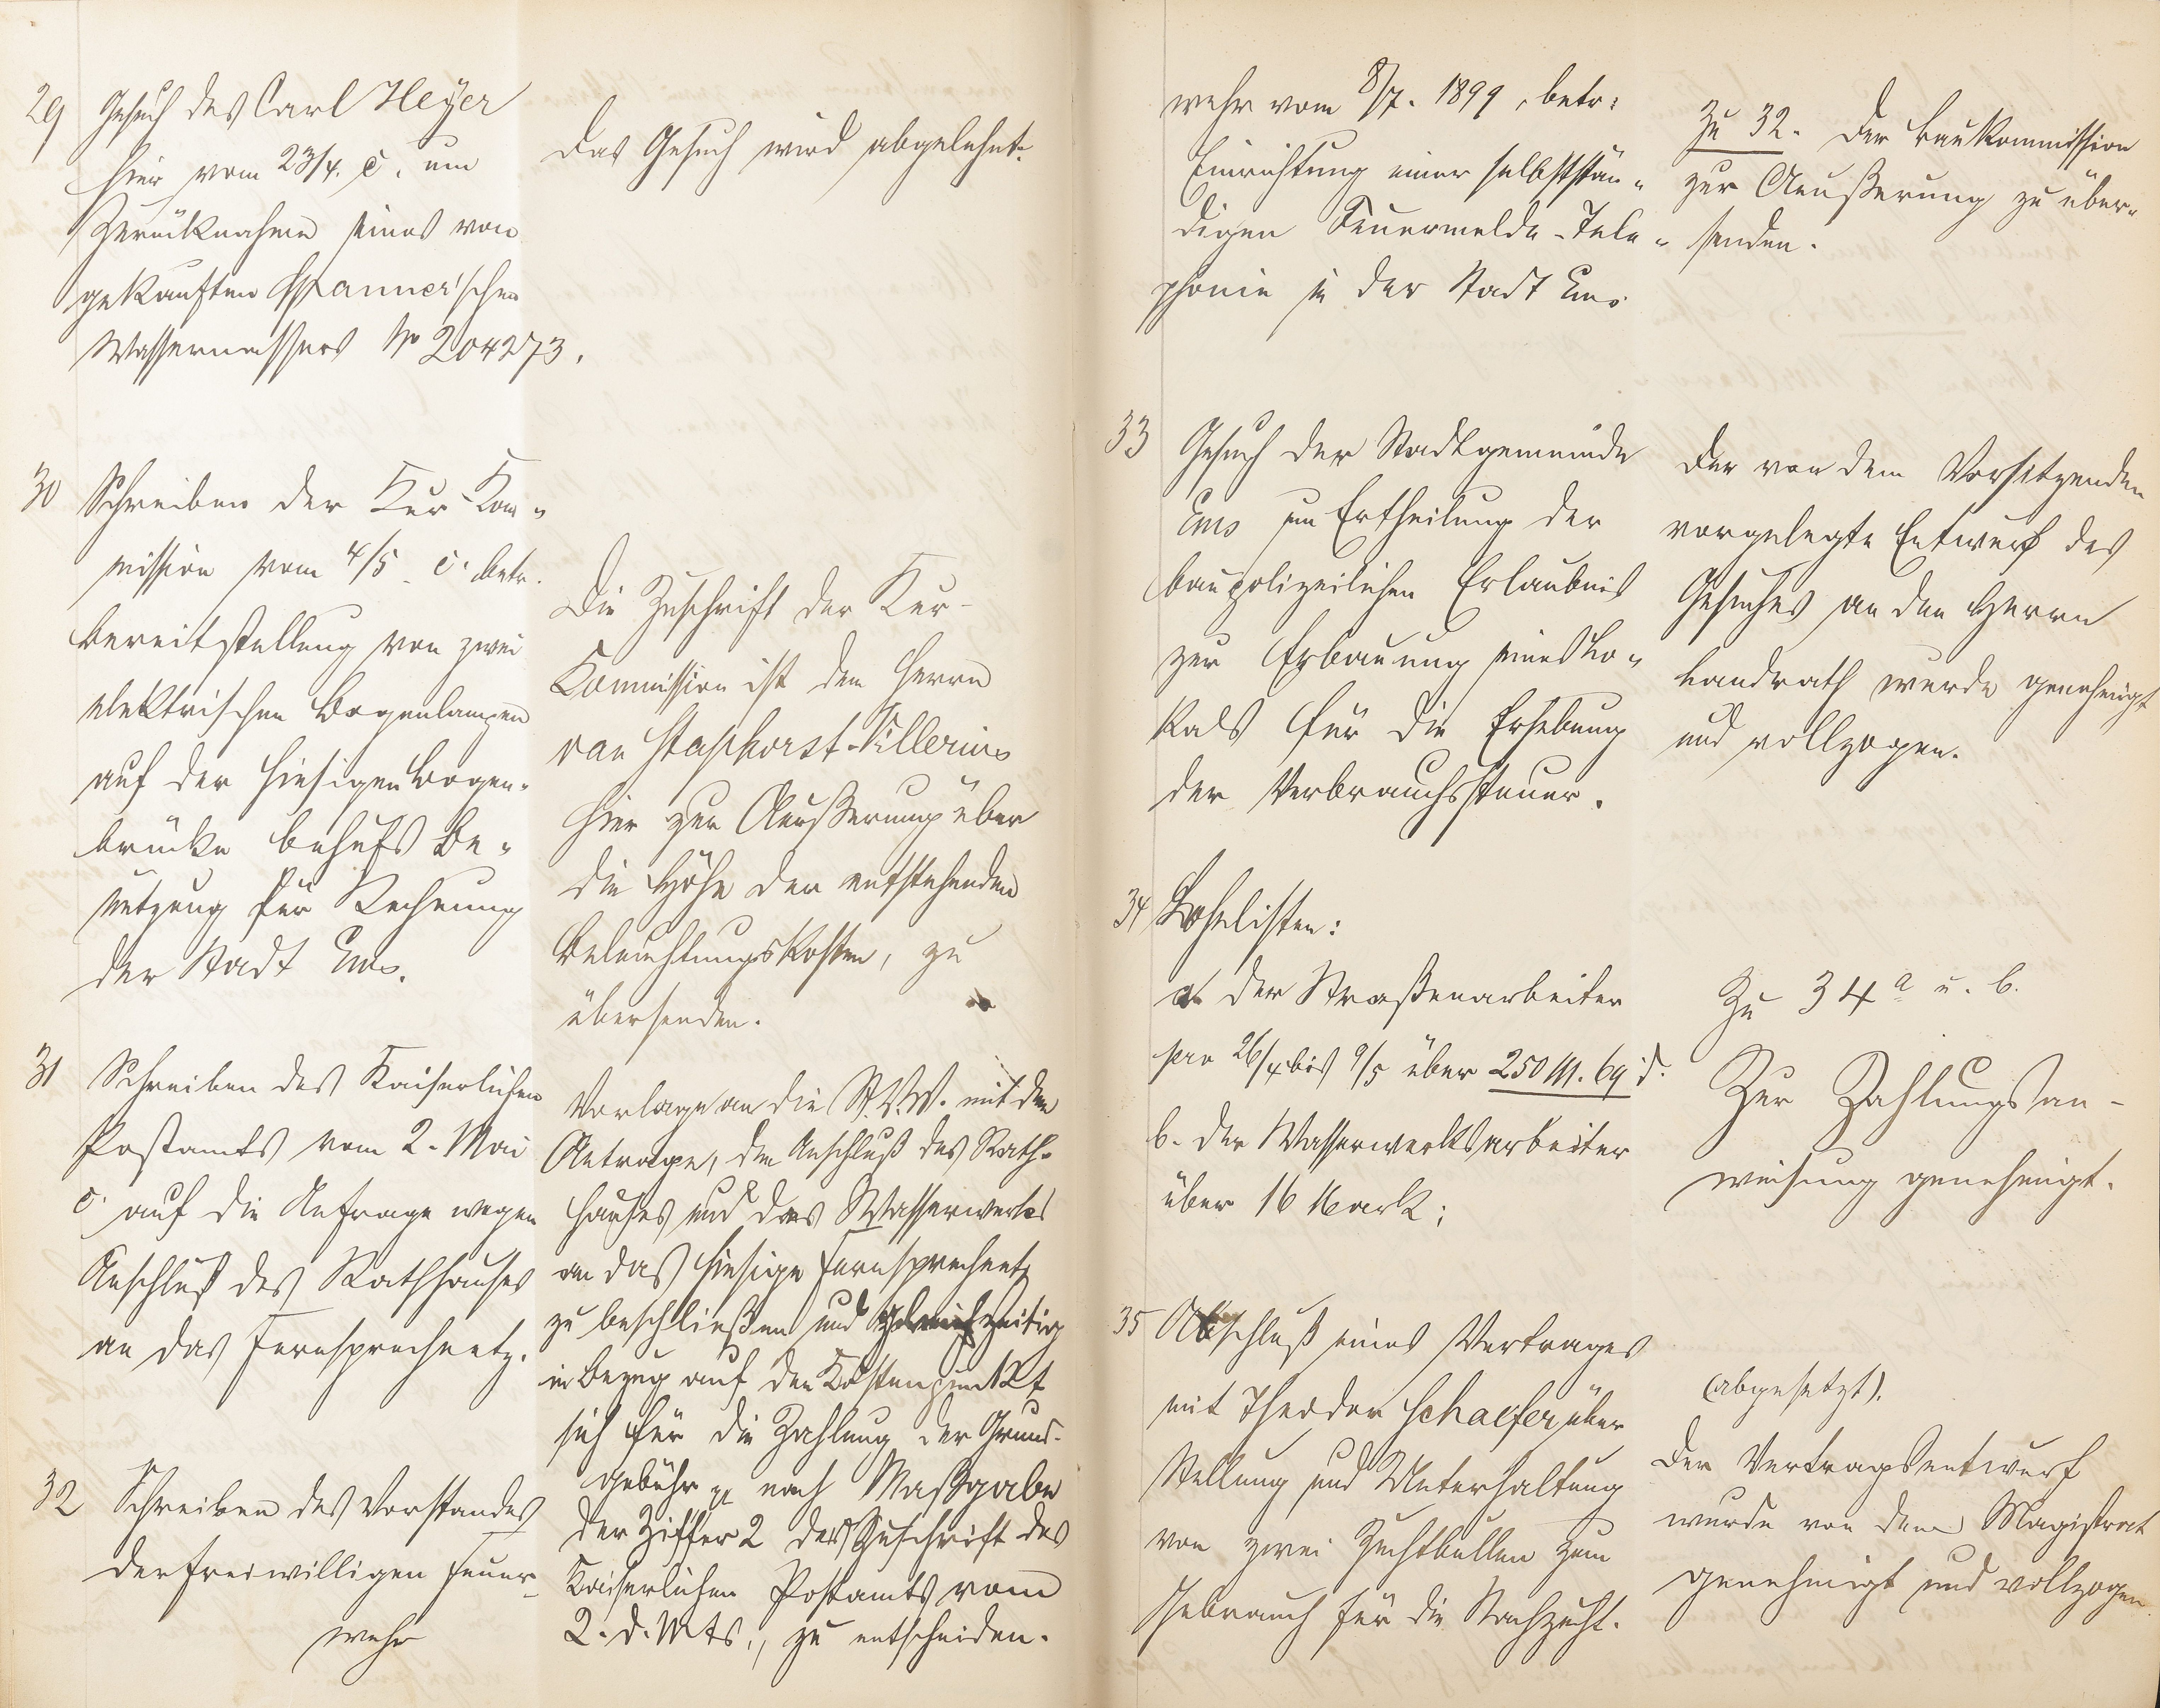 29 Gesuch des Carl Heyer
hier vom 23/4. c. um
Zurücknahme seines von
gekauften Spanner'schen
Wassermessers No 204273.
Das Gesuch wird abgelehnt.
30 Schreiben der Kur-Kom-
mission vom 4/5. c. betr.
Bereitstellung von zwei
elektrischen Bogenlampen
auf der hiesigen Bogen-
brücke behufs Be-
nutzung für Rechnung
der Stadt Ems.
Die Zuschrift der Kur-
Commission ist dem Herrn
van Staphorst-Villerius
hier zur Aeußerung über
die Höhe der entstehenden
Beleuchtungskosten, zu
übersenden.
31 Schreiben des Kaiserlichen
Postamts vom 2. Mai
c. auf die Anfrage wegen
Anschluß des Rathhauses
an das Fernsprechnetz.
Vorlage an die St.V.V. mit dem
Antrage, den Anschluß des Rath-
hauses und des Wasserwerks
an das hiesige Fernsprechnetz
zu beschließen und gleichzeitig
in Bezug auf den Kostenpunkt
sich für die Zahlung der Grund-
gebühr pp nach Maßgabe
der Ziffer 2 der Zuschrift des
Kaiserlichen Postamts vom
2. d. Mts., zu entscheiden.
32 Schreiben des Vorstandes
der freiwilligen Feuer-
wehr
wehr vom 8/7. 1899, betr.
Einrichtung einer selbststän-
digen Feuermelde-Tele-
phonie in der Stadt Ems.
Zu 32. Der Baukommission
zur Aeußerung zu über-
senden.
33 Gesuch der Stadtgemeinde
Ems um Ertheilung der
baupolizeilichen Erlaubnis
zur Erbauung eines Lo-
kals für die Erhebung
der Verbrauchssteuer.
Der von dem Vorsitzenden
vorgelegte Entwurf des
Gesuches an den Herrn
Landrath wurde genehmigt
und vollzogen.
34 Lohnlisten:
a. der Straßenarbeiter
pro 26/4 bis 9/5 über 250 M. 69 d.
b. der Wasserwerksarbeiter
über 16 Mark;
Zu 34 a u. b.
Zur Zahlungsan-
weisung genehmigt.
35 Abschluß eines Vertrages
mit Theodor Schaefer über
Stellung und Unterhaltung
von zwei Zuchtbullen zum
Gebrauch für die Nachzucht.
(abgesetzt).
Der Vertragsentwurf
wurde von dem Magistrat
genehmigt und vollzogen.